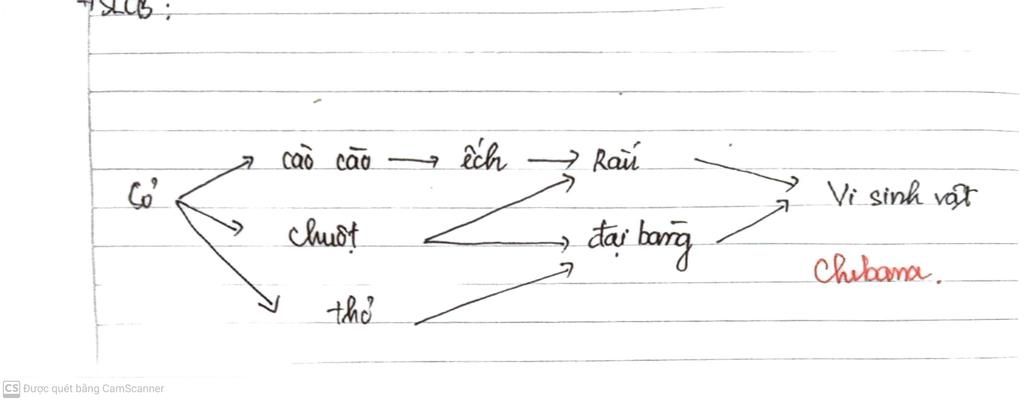 Cỏ
cào cào → ếch → Rắn
chuột
đại bàng
thỏ
Vi sinh vật
Chibana.
CS Được quét bằng CamScanner